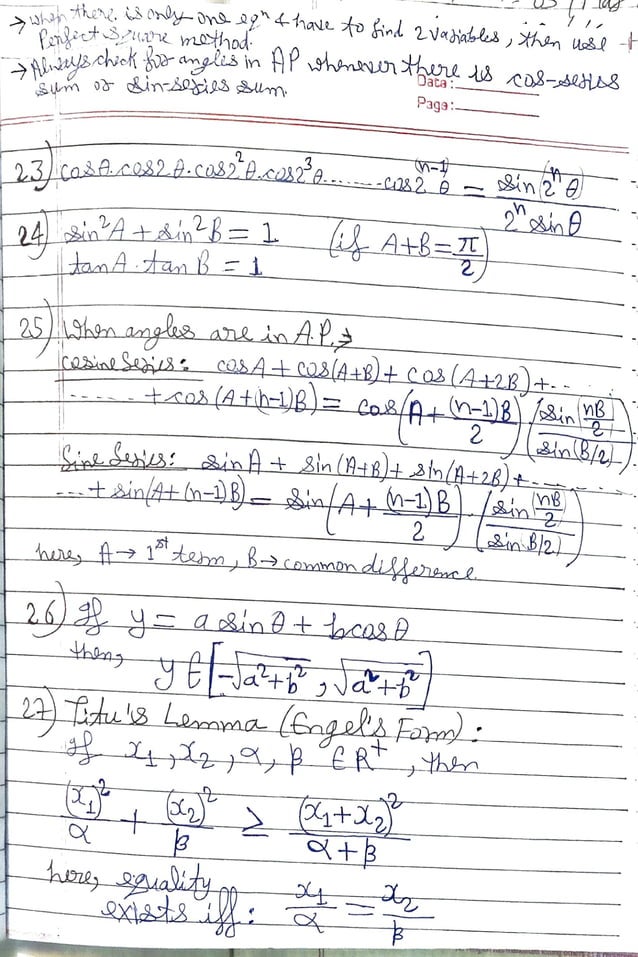 → when there is only one eqⁿ & have to find 2 variables, then use
Perfect square method.
→ Always check for angles in AP whenever there is cos-series
sum or sin-series sum.
Date:
Page:
23) cosθ.cos2θ.cos2²θ.cos2³θ........cos2^(n-1)θ = sin(2ⁿθ)/2ⁿsinθ
24) sin²A + sin²B = 1 (if A+B = π/2)
tanA.tanB = 1
25) When angles are in A.P. →
Cosine Series: cosA + cos(A+B) + cos(A+2B) + ...
...... + cos(A+(n-1)B) = cos(A + (n-1)B/2) (sin(nB/2)/sin(B/2))
Sine Series: sinA + sin(A+B) + sin(A+2B) + ......
... + sin(A+(n-1)B) = sin(A + (n-1)B/2) . (sin(nB/2)/sin B/2)
here, A → 1st term, B → common difference.
26) If y = a sinθ + bcosθ
then, y ∈ [-√a²+b², √a²+b²]
27) Titu's Lemma (Engel's Form):
If x₁, x₂, α, β ∈ R⁺, then
(x₁)²/α + (x₂)²/β ≥ (x₁+x₂)²/α+β
here, equality
exists iff: x₁/α = x₂/β